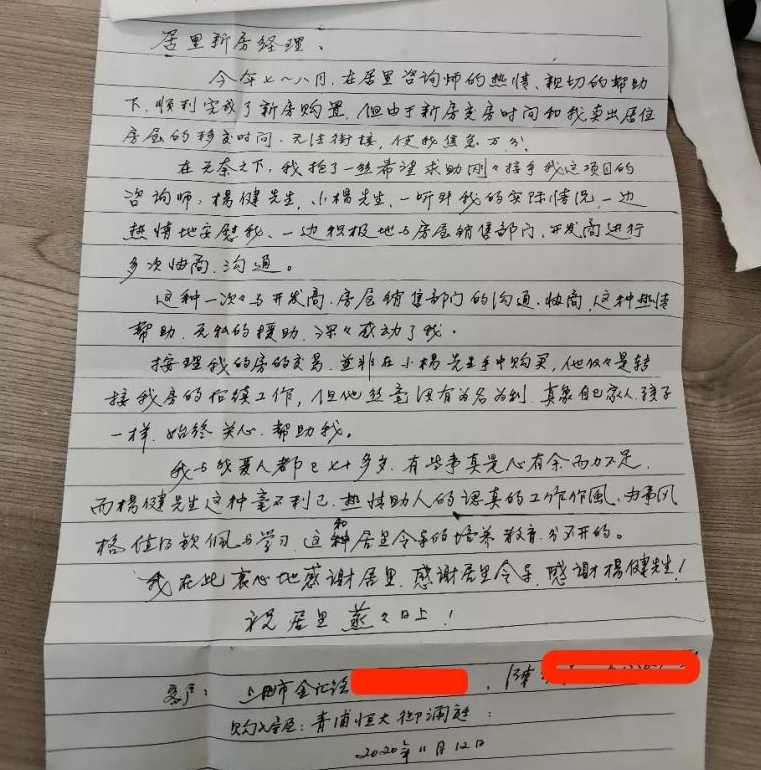 居里新房经理、
今年七～八月,在居里咨询师的热情、亲切的帮助
下,顺利完成了新房购置,但由于新房交房时间和我卖出居住
房屋的移交时间,无法衔接,使我焦急万分。
在无奈之下,我抱了一丝希望求助刚々接手我这项目的
咨询师,楊健先生,小楊先生,一听到我的实际情况,一边
热情地安慰我、一边积极地与房屋销售部门,开发商进行
多次协商、沟通。
这种一次々与开发商、房屋销售部门的沟通、协商,这种热情
帮助、无私的援助、深々感动了我。
按理我的房的交易,並非在小楊先生手中购买,他仅々是转
接我房的后续工作,但他丝毫没有为名为利,真象自己家人、孩子
一样,始终关心、帮助我。
我与我爱人都已七十多岁,有些事真是心有余而力不足,
而楊健先生这种毫不利己、热情助人的认真的工作作風、为事风
格值得钦佩与学习,这和居里令导的培养教育分不开的。
我在此衷心地感谢居里,感谢居里令导,感谢楊健先生!
祝居里蒸々日上!
客户: 上海市金汇路 、陳
购入房屋:青浦恒大御澜庭
2020年11月12日